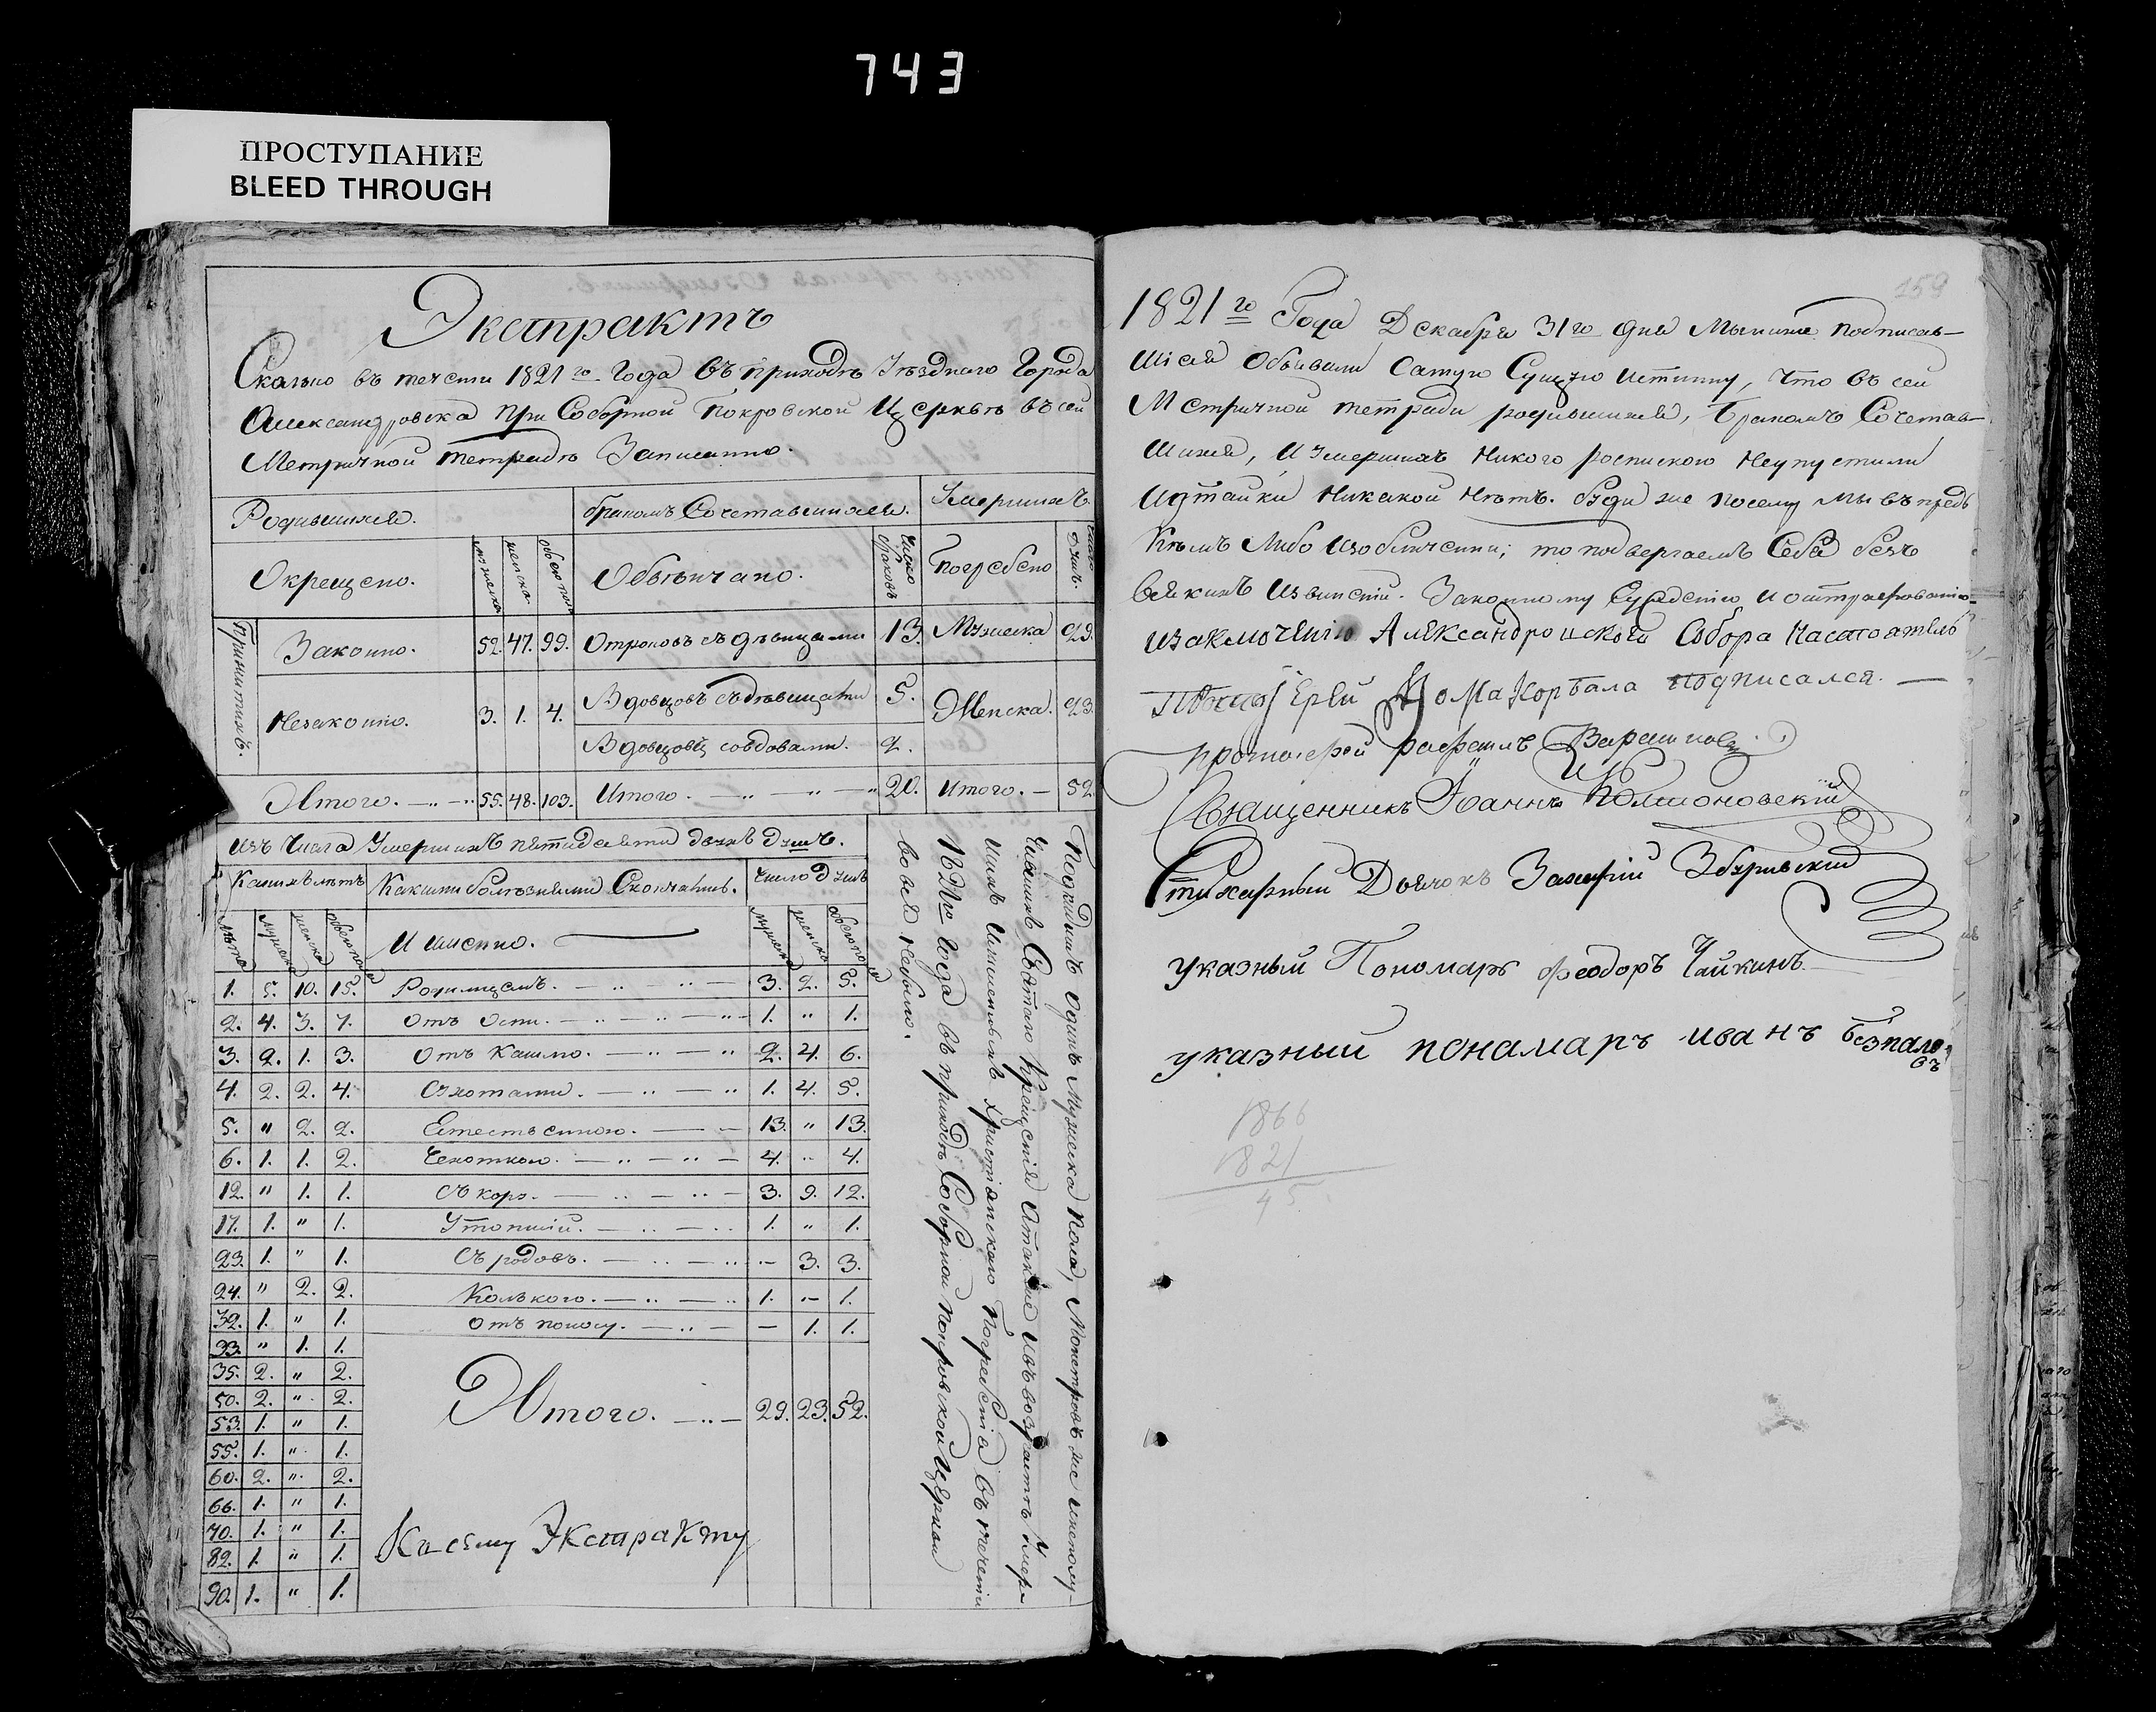 743
ПРОСТУПАНИЕ
BLEED THROUGH
Экстрактъ
Сколько въ течени 1821го Года въ приходѣ Уѣзднаго Города
Александровска при Соборной Покровской Церквѣ въ сей
Метричной тетрадѣ Записанно.
Родившихся. бракомъ Сочетавшихся. Умершихъ.
Окрещено. мужеска женска обоего пола Обвѣнчано. Число браковъ Погребено Число душъ.
Законно. 52. 47. 99. Отроковъ съ дѣвицами 13. Мужеска 29.
Незаконно. 3. 1. 4. Вдовцовъ съ дѣвицами 5. Женска. 23.
Вдовцовъ со вдовами. 2.
Итого. 55. 48. 103. Итого. 20. Итого. 52
Изъ Числа Умершихъ пятидесяти двухъ душъ.
Какихъ лѣтъ Какими болѣзнями Скончались. Число Душъ
лѣта мужеска женска обоего пола И именно. мужеска женска обоего пола
1. 5. 10. 15. Родимцемъ. 3. 2. 5.
2. 4. 3. 7. Отъ Оспи. 1. " 1.
3. 2. 1. 3. Отъ Кашлю. 2. 4. 6.
4. 2. 2. 4. Сухотами. 1. 4. 5.
5. " 2. 2. Естественою. 13. " 13.
6. 1. 1. 2. Чехоткою. 4. " 4.
12. " 1. 1. Съ корэ. 3. 9. 12.
17. 1. " 1. Утопшій. 1. " 1.
23. 1. " 1. Съ родовъ. - 3. 3.
24. " 2. 2. Колького. 1. - 1.
32. 1. " 1. Отъ поносу. - 1. 1.
33. " 1. 1.
35. 2. " 2.
50. 2. " 2. Итого. 29. 23. 52.
53. 1. " 1.
55. 1. " 1.
60. 2. " 2.
66. 1. " 1.
70. 1. " 1.
82. 1. " 1.
90. 1. " 1.
К сему Экстракту
Подкидишъ Одинъ Мужеска пола, Монстровъ же
Святаго Крещенія Атакже изъ возрастѣ Умер-
шихъ христіанского Погребенія въ течени
1821го Года въ приходѣ Соборной Покровской Церкви
вовся небыло.
159
1821го Года Декабря 31го дня Мыниже подписав-
шіеся Объявили Самую Сущую истинну, что въ сей
Метричной тетради родившихся, Бракомъ Сочетав-
шихся, И Умершихъ Никого роспискою Неупустили
Иутайки Никакой Нѣтъ. буди же посему мы въпредь
Кѣмъ Либо Изобличени; то подвергаемъ Себя безъ
всякихъ Извиненій. Законному Сужденію и оштрафованію
изаключению Александровского Собора Настоятель
Іерей Фома Корбала подписался.
протоіерей рафаилъ
Священникъ Іоаннъ
Стихарный Дьячокъ Захарій Збуривский
указный Пономарь феодоръ Чайкинъ
указный понамаръ иванъ безпало-
въ
1866
1821
45